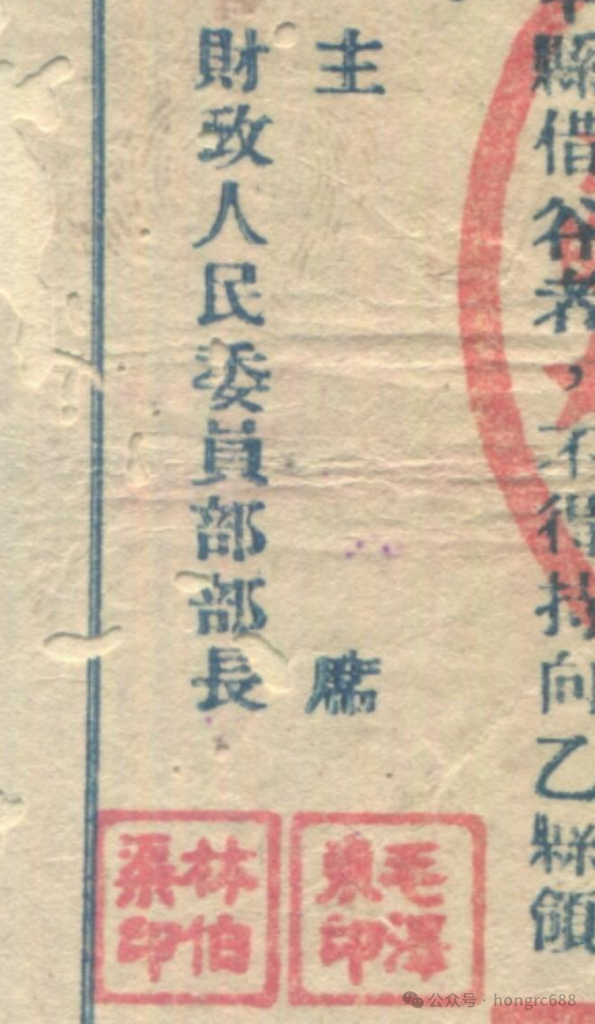 縣借谷者，不得持向乙縣領
主席
財政人民委員部部長
毛澤
東印
林伯
渠印
公众号 · hongrc688